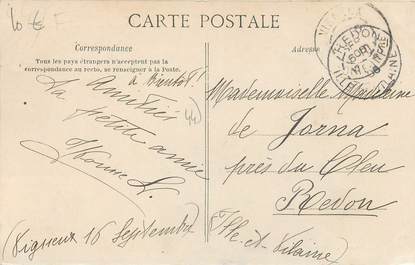 10 € F
CARTE POSTALE
Correspondance
Tous les pays étrangers n'acceptent pas la
correspondance au recto, se renseigner à la Poste.
Adresse
à Bientôt!
Amitiés
44
La petite amie
Yvonne L.
(Vigneux 16 Septembre)
Mademoiselle Madeleine
de Jorna
près du Cleu
Redon
(Ille-et-Vilaine)
REDON